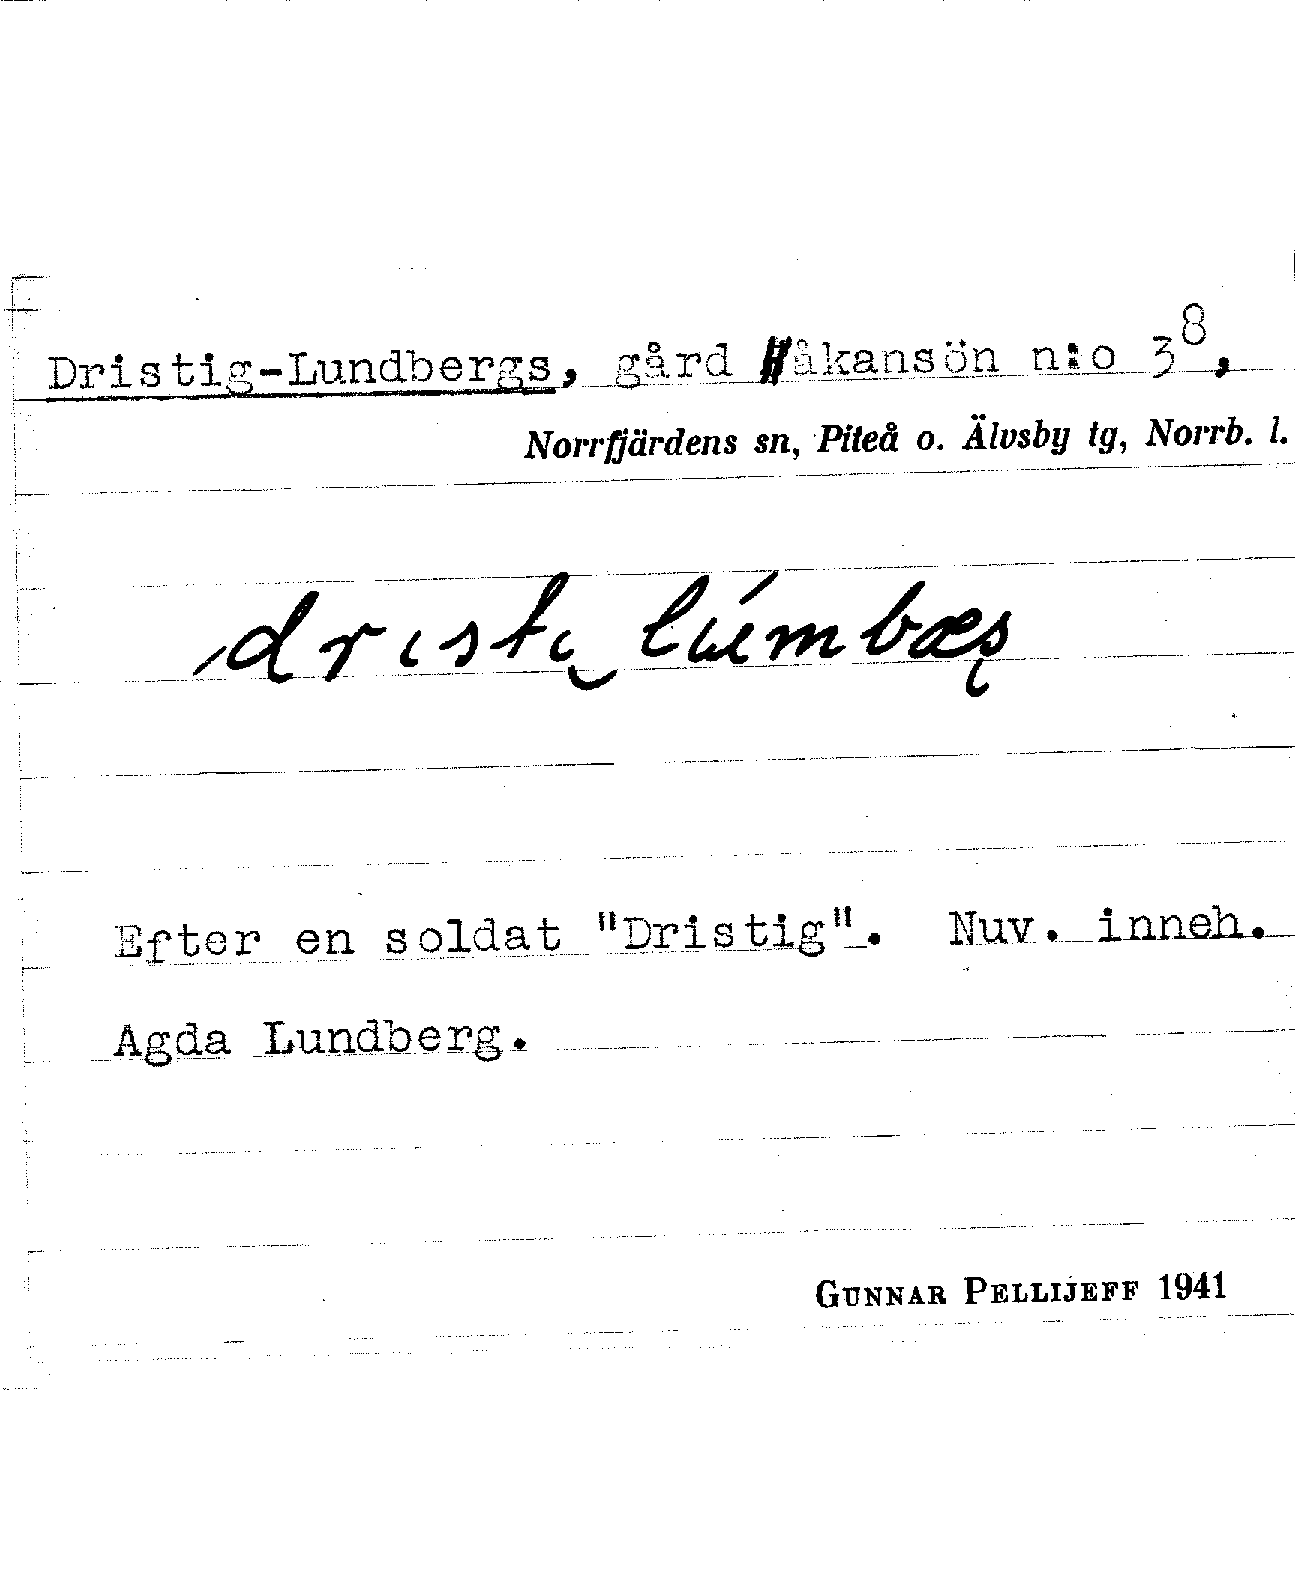 Dristig-Lundbergs, gård Håkansön n:o 3⁸,
Norrfjärdens sn, Piteå o. Älvsby tg, Norrb. l.
Efter en soldat "Dristig". Nuv. inneh.
Agda Lundberg.
GUNNAR PELLIJEFF 1941